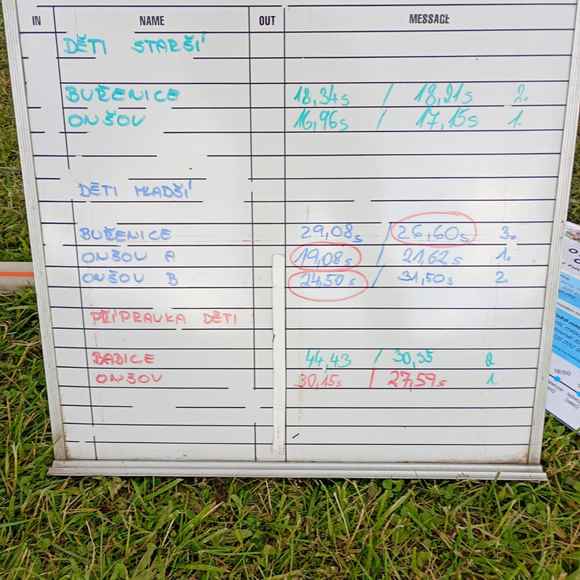 IN NAME OUT MESSAGE
DĚTI STARŠÍ
BUŽENICE 18,34s / 18,21s 2.
ONŠOV 16,96s / 17,15s 1.
DĚTI MLADŠÍ
BUŽENICE 29,08s / 26,60s 3.
ONŠOV A 19,08s / 21,62s 1.
ONŠOV B 24,50s / 31,50s 2.
PŘÍPRAVKA DĚTI
44,43 / 30,35 2.
ONŠOV 30,15s / 27,59s 1.